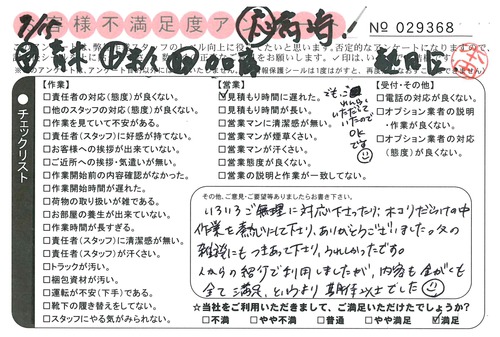 客様不満足度アン
No 029368
チェックリスト
【作業】
□責任者の対応(態度)が良くない。
□他のスタッフの対応(態度)が良くない。
□作業を見ていて不安がある。
□責任者(スタッフ)に好感が持てない。
□お客様への挨拶が出来ていない。
□ご近所への挨拶・気遣いが無い。
□作業開始前の内容確認がなかった。
□作業開始時間が遅れた。
□荷物の取り扱いが雑である。
□お部屋の養生が出来ていない。
□作業時間が長すぎる。
□責任者(スタッフ)に清潔感が無い。
□責任者(スタッフ)が汗くさい。
□トラックが汚い。
□梱包資材が汚い。
□運転が不安(下手)である。
□靴下の履き替えをしてない。
□スタッフにやる気がみられない。
【営業】
☑見積もり時間に遅れた。
□見積もり時間が長い。
□営業マンに清潔感が無い。
□営業マンが煙草くさい。
□営業マンが汗くさい。
□営業態度が良くない。
□営業の説明と作業が一致してない。
でも、ご
れんらく
いただいて
いたので
OK
です
【受付・その他】
□電話の対応が良くない。
□オプション業者の説明
・作業が良くない。
□オプション業者の対応
(態度)が良くない。
その他、ご意見・ご要望等ありましたらお書き下さい。
いろいろご無理に対応下さったり、ホコリだらけの中
作業を熱心にして下さり、ありがとうございました。父の
雑談にもつきあって下さり、うれしかったです。
人からの紹介で利用しましたが、内容も金がくも
全て満足、というより期待以上でした
☆当社をご利用いただきまして、ご満足いただけたでしょうか?
□不満 □やや不満 □普通 □やや満足 ☑満足